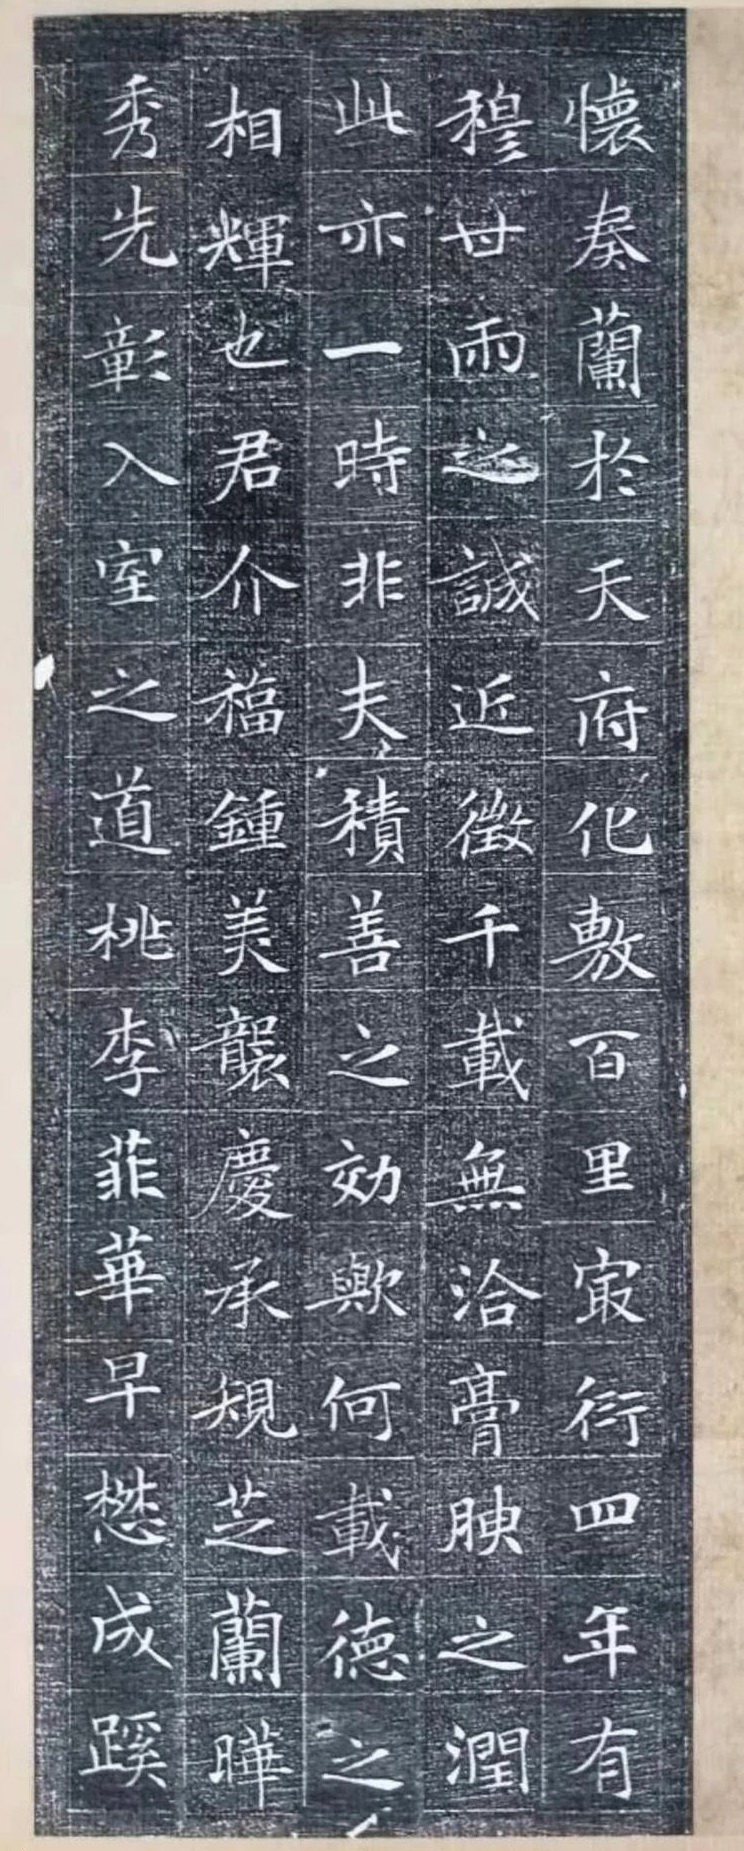 懷奏蘭於天府化敷百里冣衍四年有
穆卄雨之誠近徵千載無洽膏腴之潤
此亦一時非夫積善之効歟何載德之
相輝也君介福鍾美襲慶承規芝蘭曄
秀先彰入室之道桃李菲華早懋成蹊